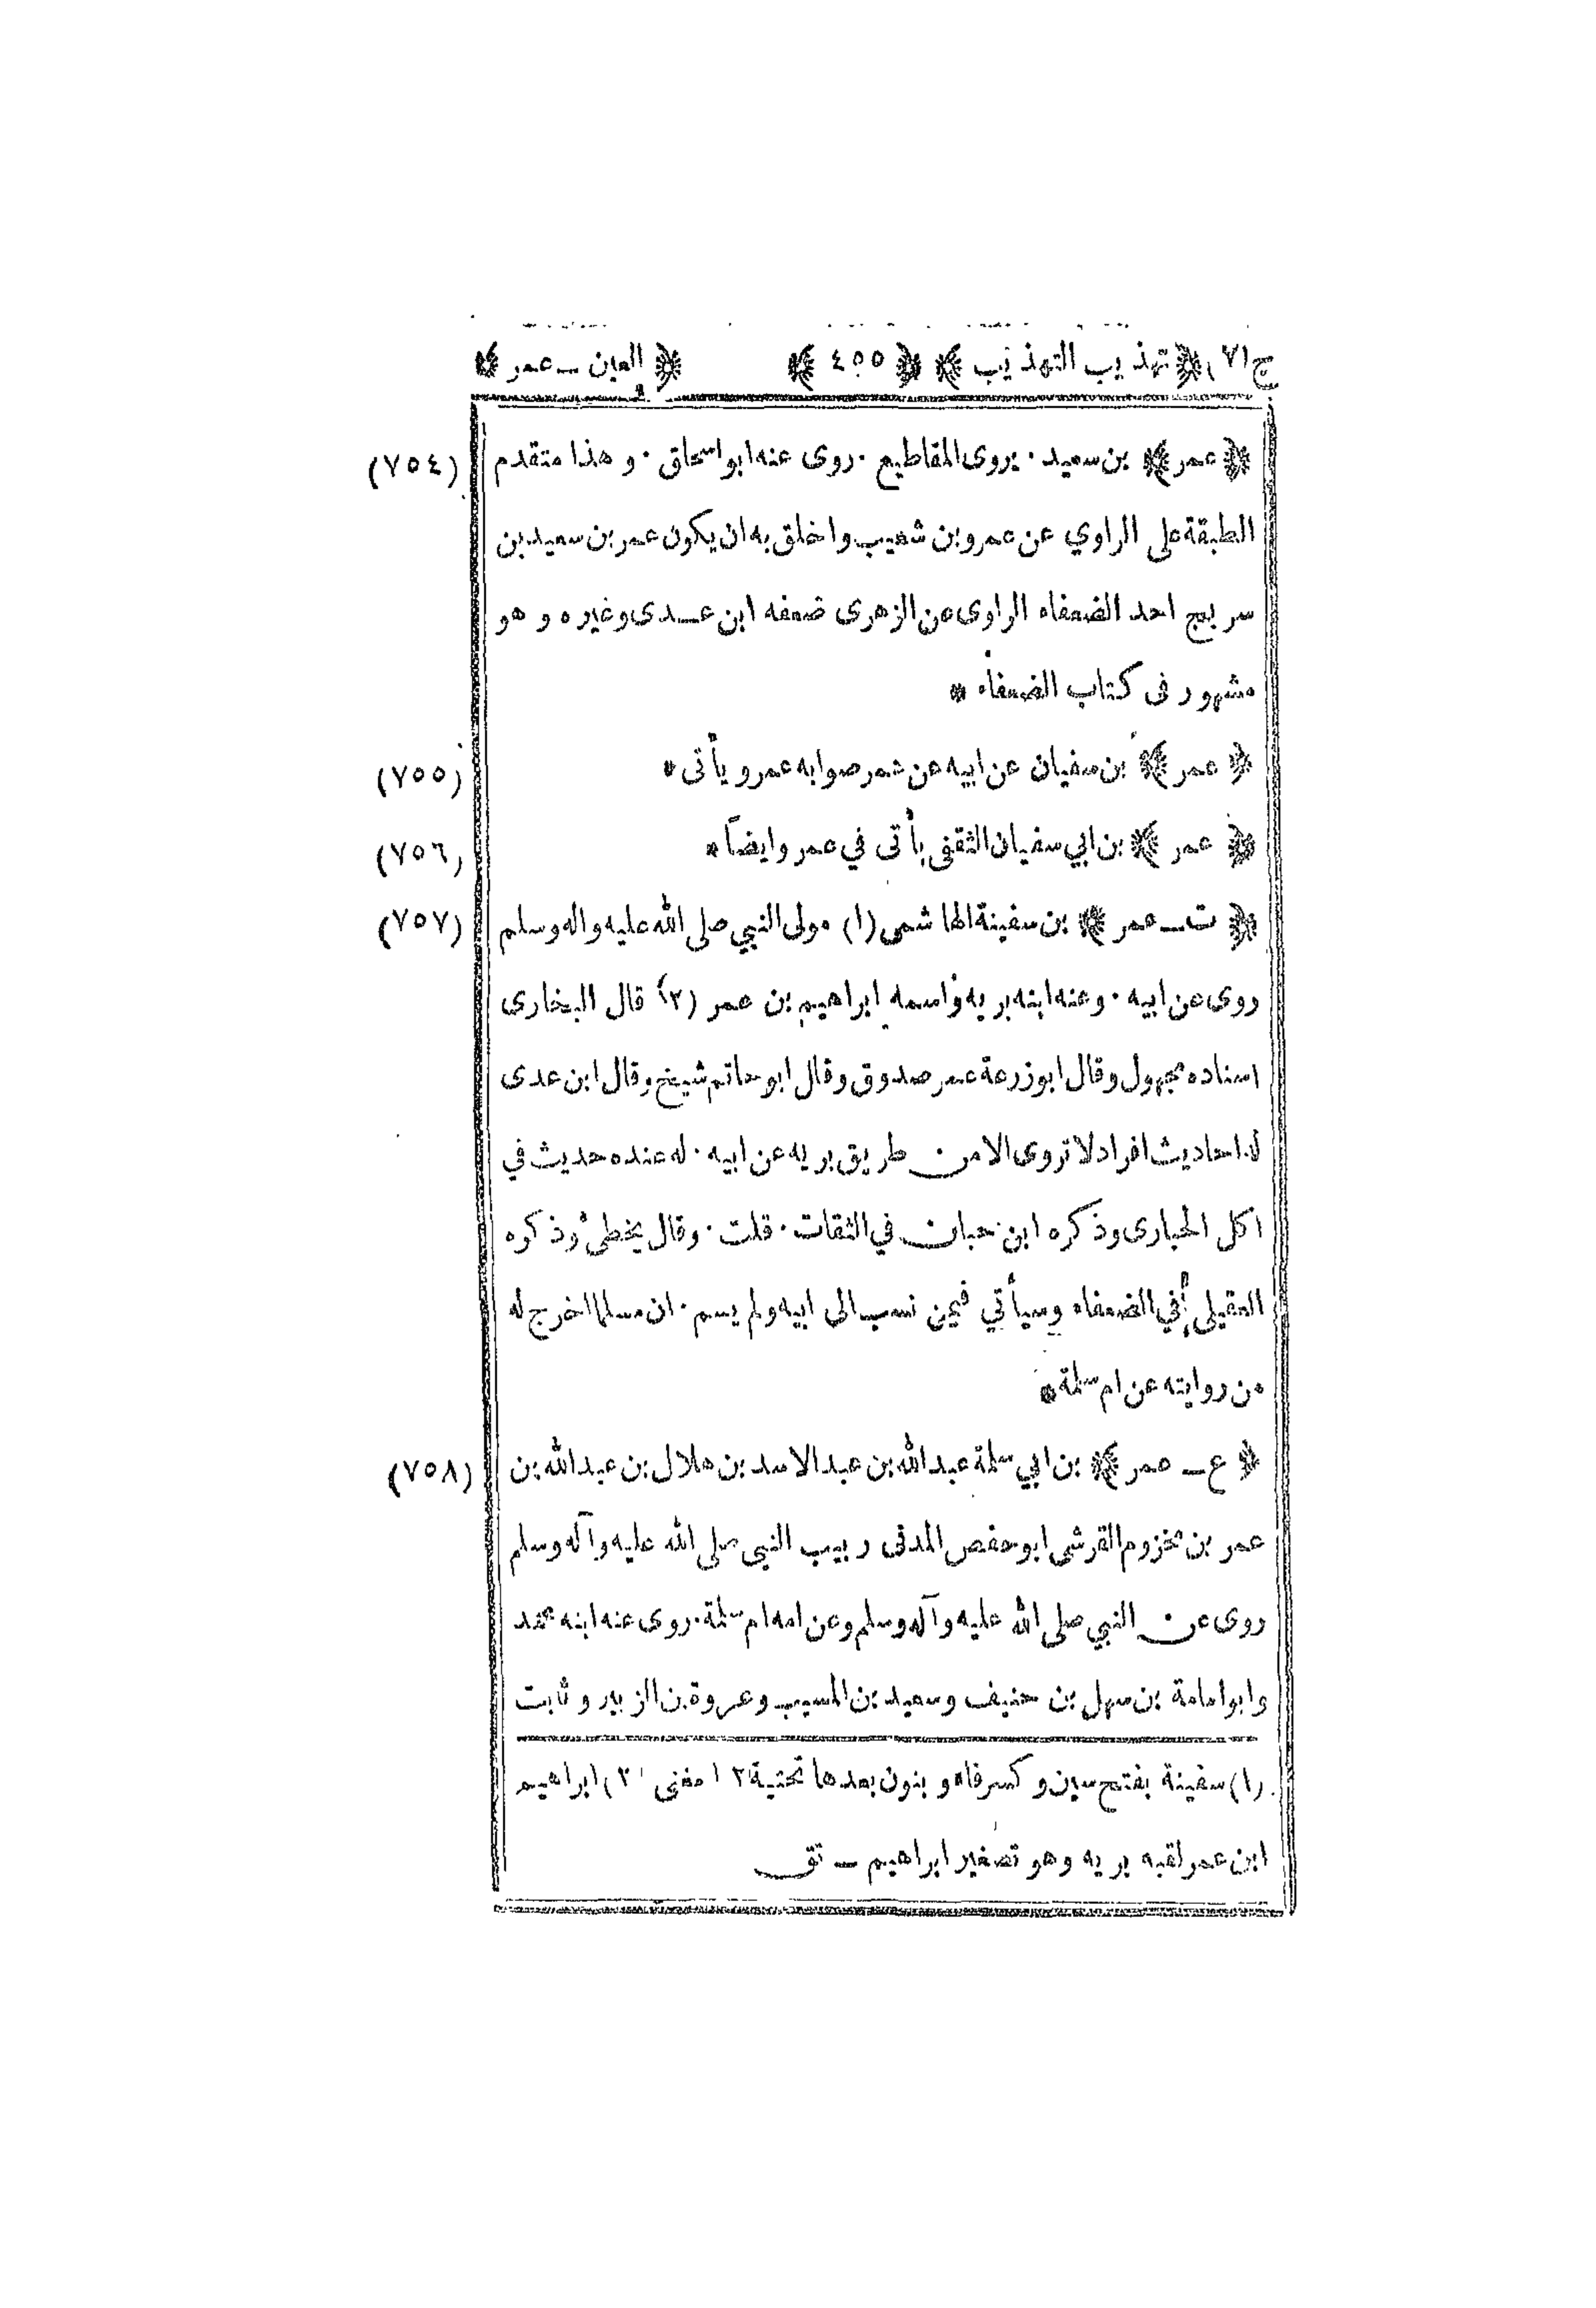 ج (٧) ﴿تهذيب التهذيب﴾ ﴿٤٥٥﴾ ﴿العين ـ عمر﴾
﴿عمر﴾ بن سعيد . يروى المقاطيع . روى عنه ابو اسحاق . و هذا متقدم (٧٥٤)
الطبقة على الراوي عن عمرو بن شعيب واخلق به ان يكون عمر بن سعيد بن
سريج احد الضعفاء الراوى عن الزهرى ضعفه ابن عـدى وغيره و هو
مشهور فى كتاب الضعفاء *
﴿عمر﴾ بن سفيان عن ابيه عن عمر صوابه عمرو يأتى * (٧٥٥)
﴿عمر﴾ بن ابي سفيان الثقفى يأتى في عمر وايضاً * (٧٥٦)
﴿ت ـ عمر﴾ بن سفينة الهاشمى (١) مولى النبي صلى الله عليه واله وسلم (٧٥٧)
روى عن ابيه . وعنه ابنه بريه واسمه ابراهيم بن عمر (٢) قال البخارى
اسناده مجهول وقال ابو زرعة عمر صدوق وقال ابو حاتم شيخ وقال ابن عدى
له احاديث افراد لا تروى الا من طريق بريه عن ابيه . له عنده حديث في
اكل الحبارى وذكره ابن حبان في الثقات . قلت . وقال يخطئ وذكره
العقيلى في الضعفاء وسيأتي فيمن نسب الى ابيه ولم يسم . ان مسلما اخرج له
من روايته عن ام سلمة *
﴿ع ـ عمر﴾ بن ابي سلمة عبد الله بن عبد الاسد بن هلال بن عبد الله بن (٧٥٨)
عمر بن مخزوم القرشى ابو حفص المدنى ربيب النبي صلى الله عليه وآله وسلم
روى عن النبي صلى الله عليه وآله وسلم وعن امه ام سلمة . روى عنه ابنه محمد
وابو امامة بن سهل بن حنيف وسعيد بن المسيب وعروة بن الزبير و ثابت
(١) سفينة بفتح سين و كسر فاء و بنون بعدها تحتية ١٢ مغنى (٢) ابراهيم
ابن عمر لقبه بريه وهو تصغير ابراهيم ـ تق